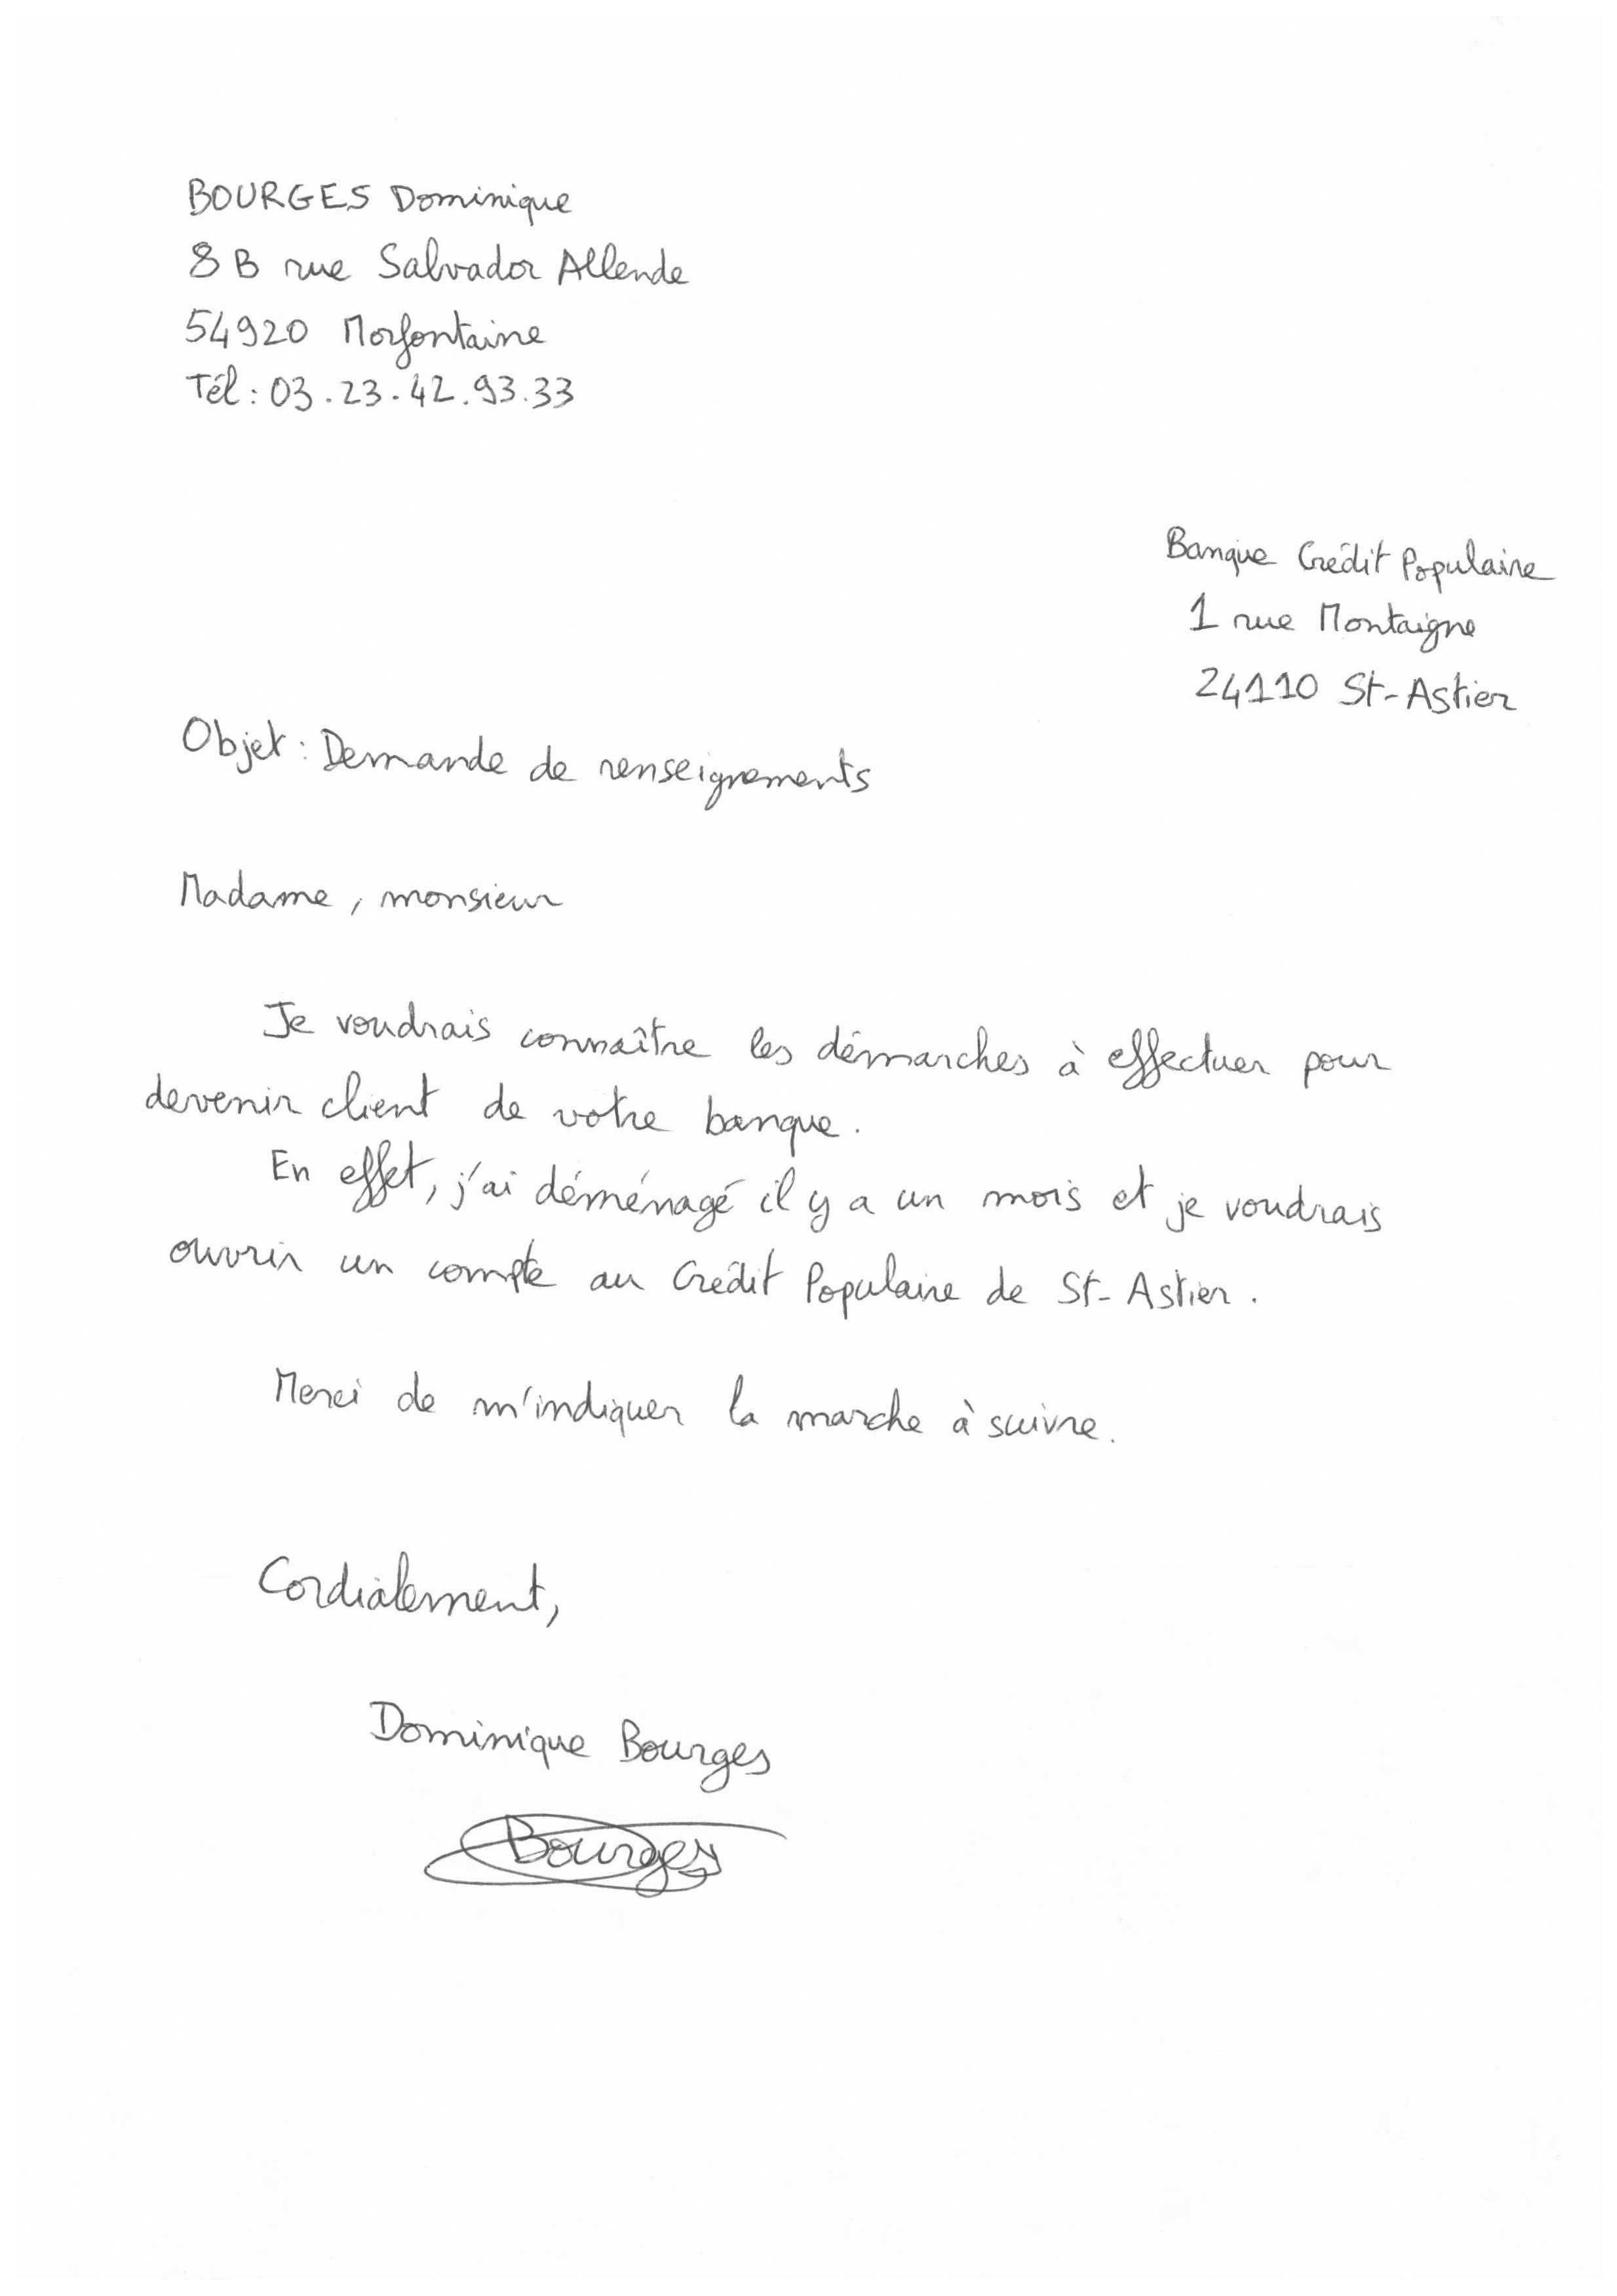 BOURGES Dominique
8 B rue Salvador Allende
54920 Morfontaine
Tél : 03.23.42.93.33
Banque Crédit Populaire
1 rue Montaigne
24110 St-Astier
Objet : Demande de renseignements
Madame, monsieur
Je voudrais connaître les démarches à effectuer pour
devenir client de votre banque.
En effet, j'ai déménagé il y a un mois et je voudrais
ouvrir un compte au Crédit Populaire de St-Astier.
Merci de m'indiquer la marche à suivre.
Cordialement,
Dominique Bourges
Bourges